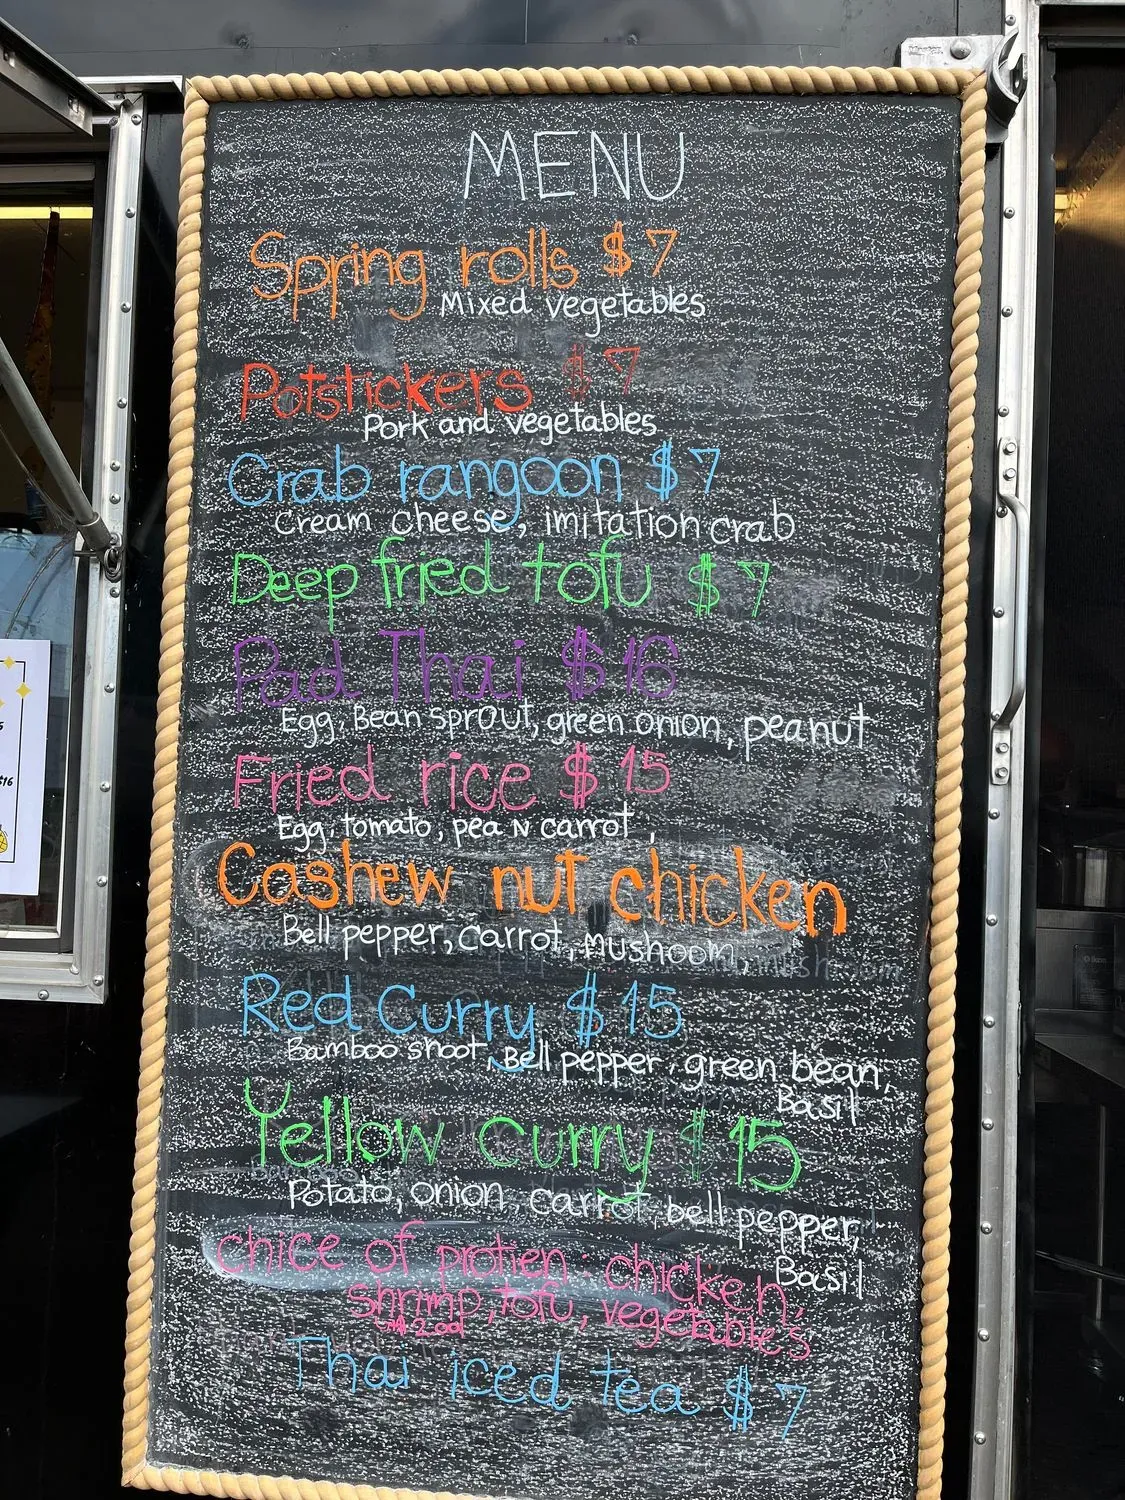 MENU
Spring rolls $7
Mixed vegetables
Potstickers $7
Pork and vegetables
Crab rangoon $7
Cream cheese, imitation crab
Deep fried tofu $7
Pad Thai $16
Egg, Bean sprout, green onion, peanut
Fried rice $15
Egg, tomato, pea N carrot,
Cashew nut chicken
Bell pepper, carrot, mushoom,
Red Curry $15
Bamboo shoot, Bell pepper, green bean,
Basil
Yellow Curry $15
Potato, onion, carrot, bell pepper,
Basil
chice of protien: chicken,
shrimp, tofu, vegetable's
Thai iced tea $7
$16